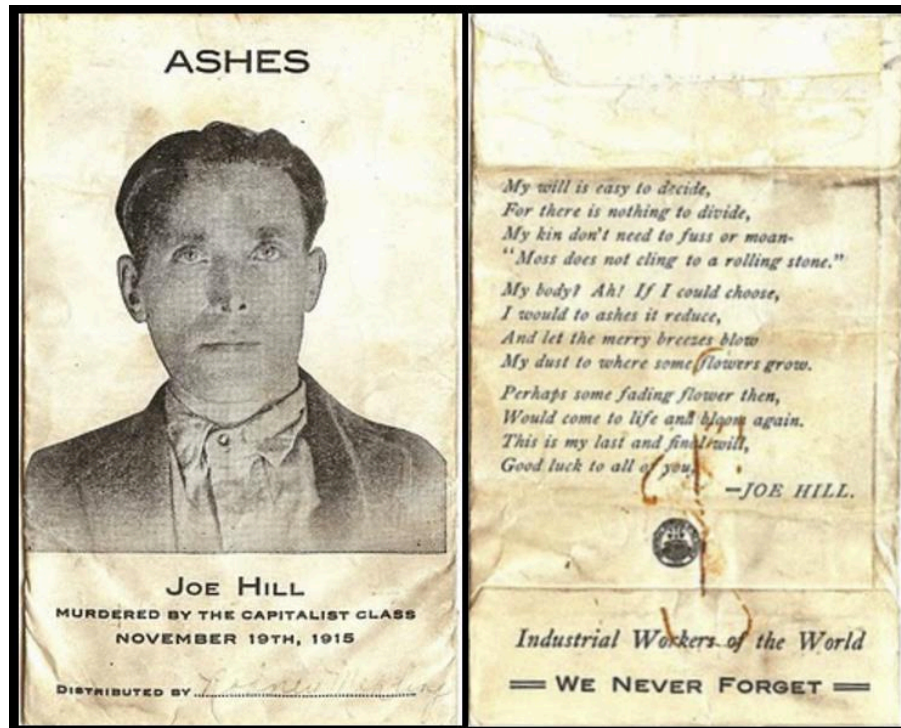 ASHES
JOE HILL
MURDERED BY THE CAPITALIST CLASS
NOVEMBER 19TH, 1915
DISTRIBUTED BY
My will is easy to decide,
For there is nothing to divide,
My kin don't need to fuss or moan-
"Moss does not cling to a rolling stone."
My body? Ah! If I could choose,
I would to ashes it reduce,
And let the merry breezes blow
My dust to where some flowers grow.
Perhaps some fading flower then,
Would come to life and bloom again.
This is my last and final will,
Good luck to all of you,
—JOE HILL.
Industrial Workers of the World
WE NEVER FORGET